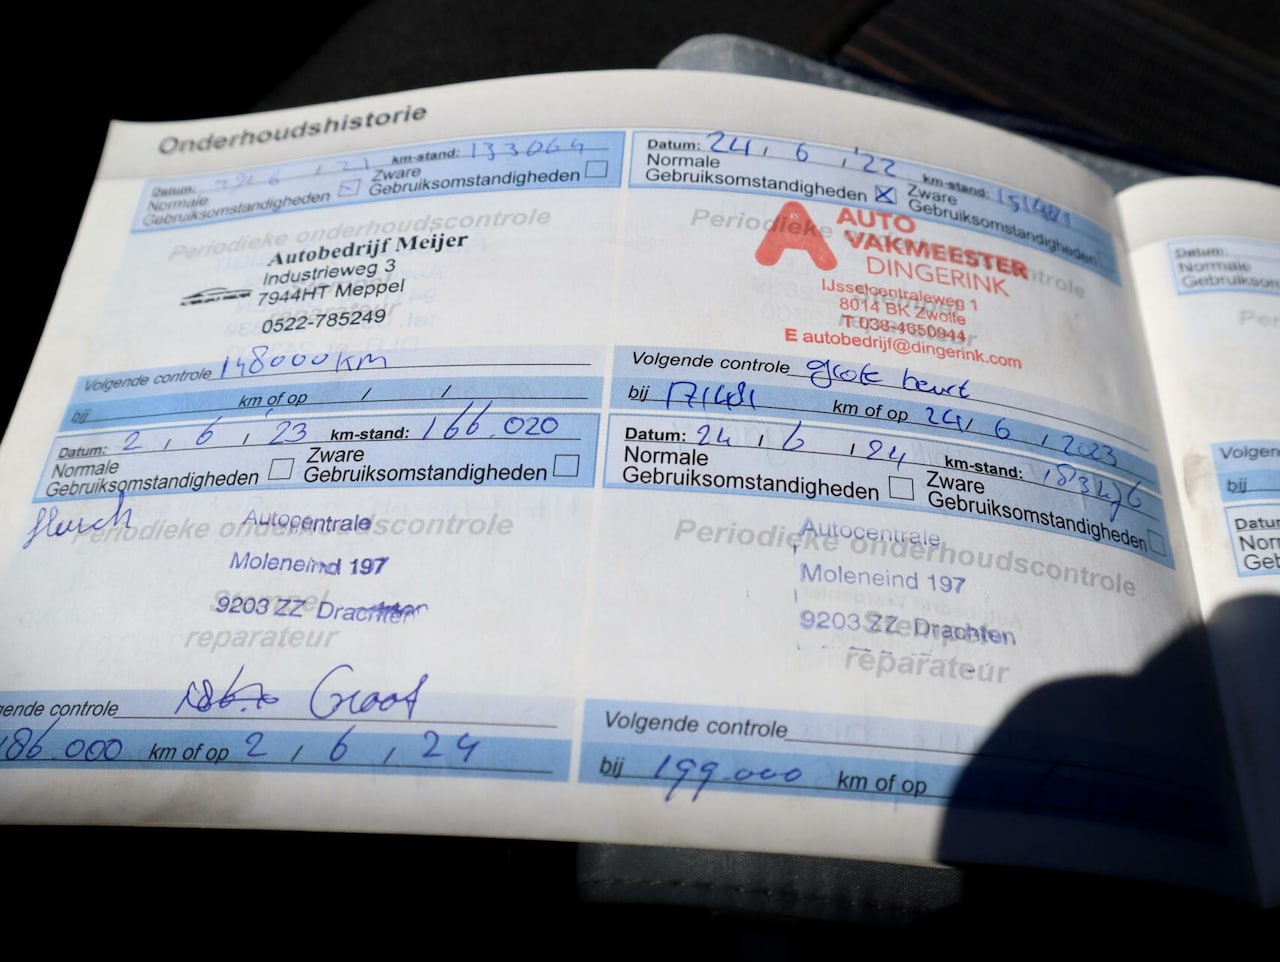 Onderhoudshistorie
Datum: 6 , 21 km-stand: 133064
Normale
Gebruiksomstandigheden
Zware
Gebruiksomstandigheden
Periodieke onderhoudscontrole
Autobedrijf Meijer
Industrieweg 3
7944HT Meppel
0522-785249
Volgende controle 148000 km
bij km of op / /
Datum: 24 , 6 , '22 km-stand:
Normale
Gebruiksomstandigheden
Zware
Gebruiksomstandigheden
Periodieke onderhoudscontrole
AUTO
VAKMEESTER
DINGERINK
IJsselcentraleweg 1
8014 BK Zwolle
T 038-4650944
E autobedrijf@dingerink.com
Volgende controle grote beurt
bij 171481 km of op 24 , 6 , 2023
Datum: 2 , 6 , '23 km-stand: 166.020
Normale
Gebruiksomstandigheden
Zware
Gebruiksomstandigheden
Periodieke onderhoudscontrole
Autocentrale
Moleneind 197
9203 ZZ Drachten
Stempel
reparateur
Volgende controle Groot
186.000 km of op 2 , 6 , 24
Datum: 24 , 6 , 24 km-stand:
Normale
Gebruiksomstandigheden
Zware
Gebruiksomstandigheden
Periodieke onderhoudscontrole
Autocentrale
Moleneind 197
9203 ZZ Drachten
Stempel
reparateur
Volgende controle
bij 199.000 km of op
Datum:
Normale
Gebruiksom
Volgen
bij
Datu
Nor
Geb